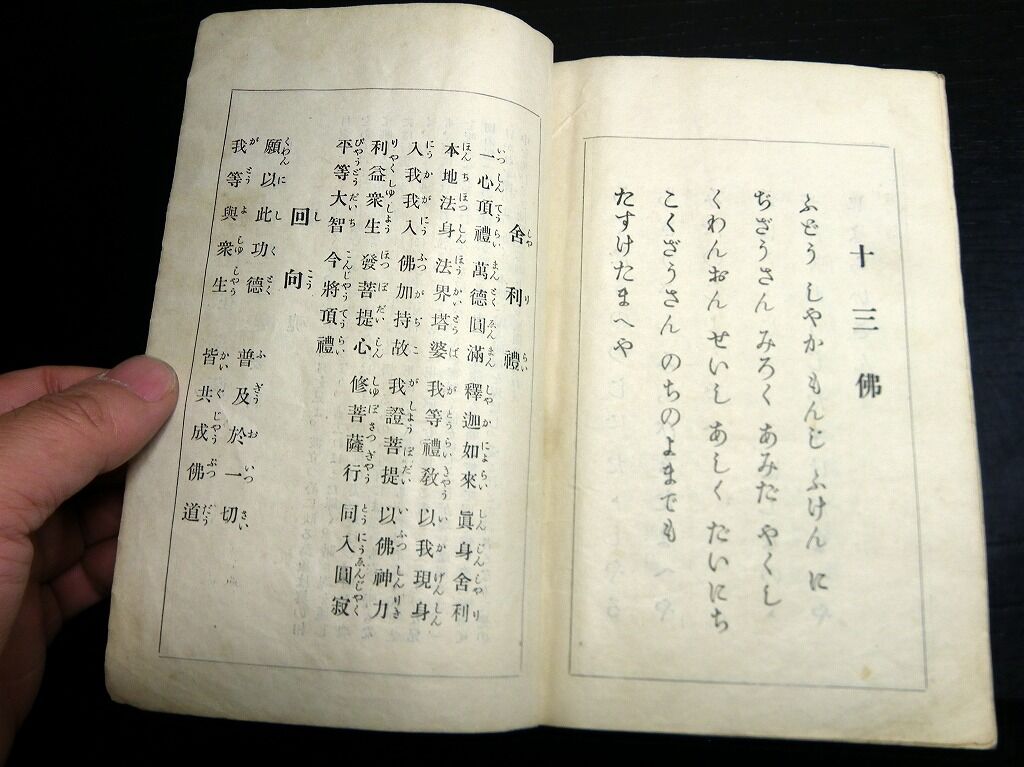 十三佛
ふどう しやか もんじ ふけん に
ぢざうさん みろく あみだ やくし
くわんおん せいし あしく だいにち
こくざうさん のちのよまでも
たすけたまへや
舍利禮
一心頂禮 萬德圓滿 釋迦如來 眞身舍利
本地法身 法界塔婆 我等禮敬 以我現身
入我我入 佛加持故 我證菩提 以佛神力
利益衆生 發菩提心 修菩薩行 同入圓寂
平等大智 今將頂禮
回向
願以此功德 普及於一切
我等與衆生 皆共成佛道